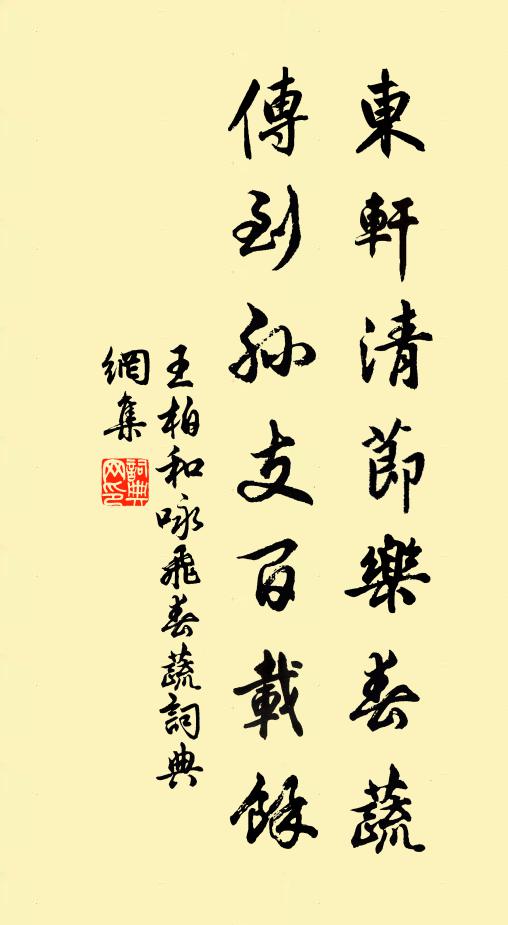 東軒清節樂春蔬
傳到孫支百載餘
王柏和咏飛春蔬詞典
網集
詞典
網印